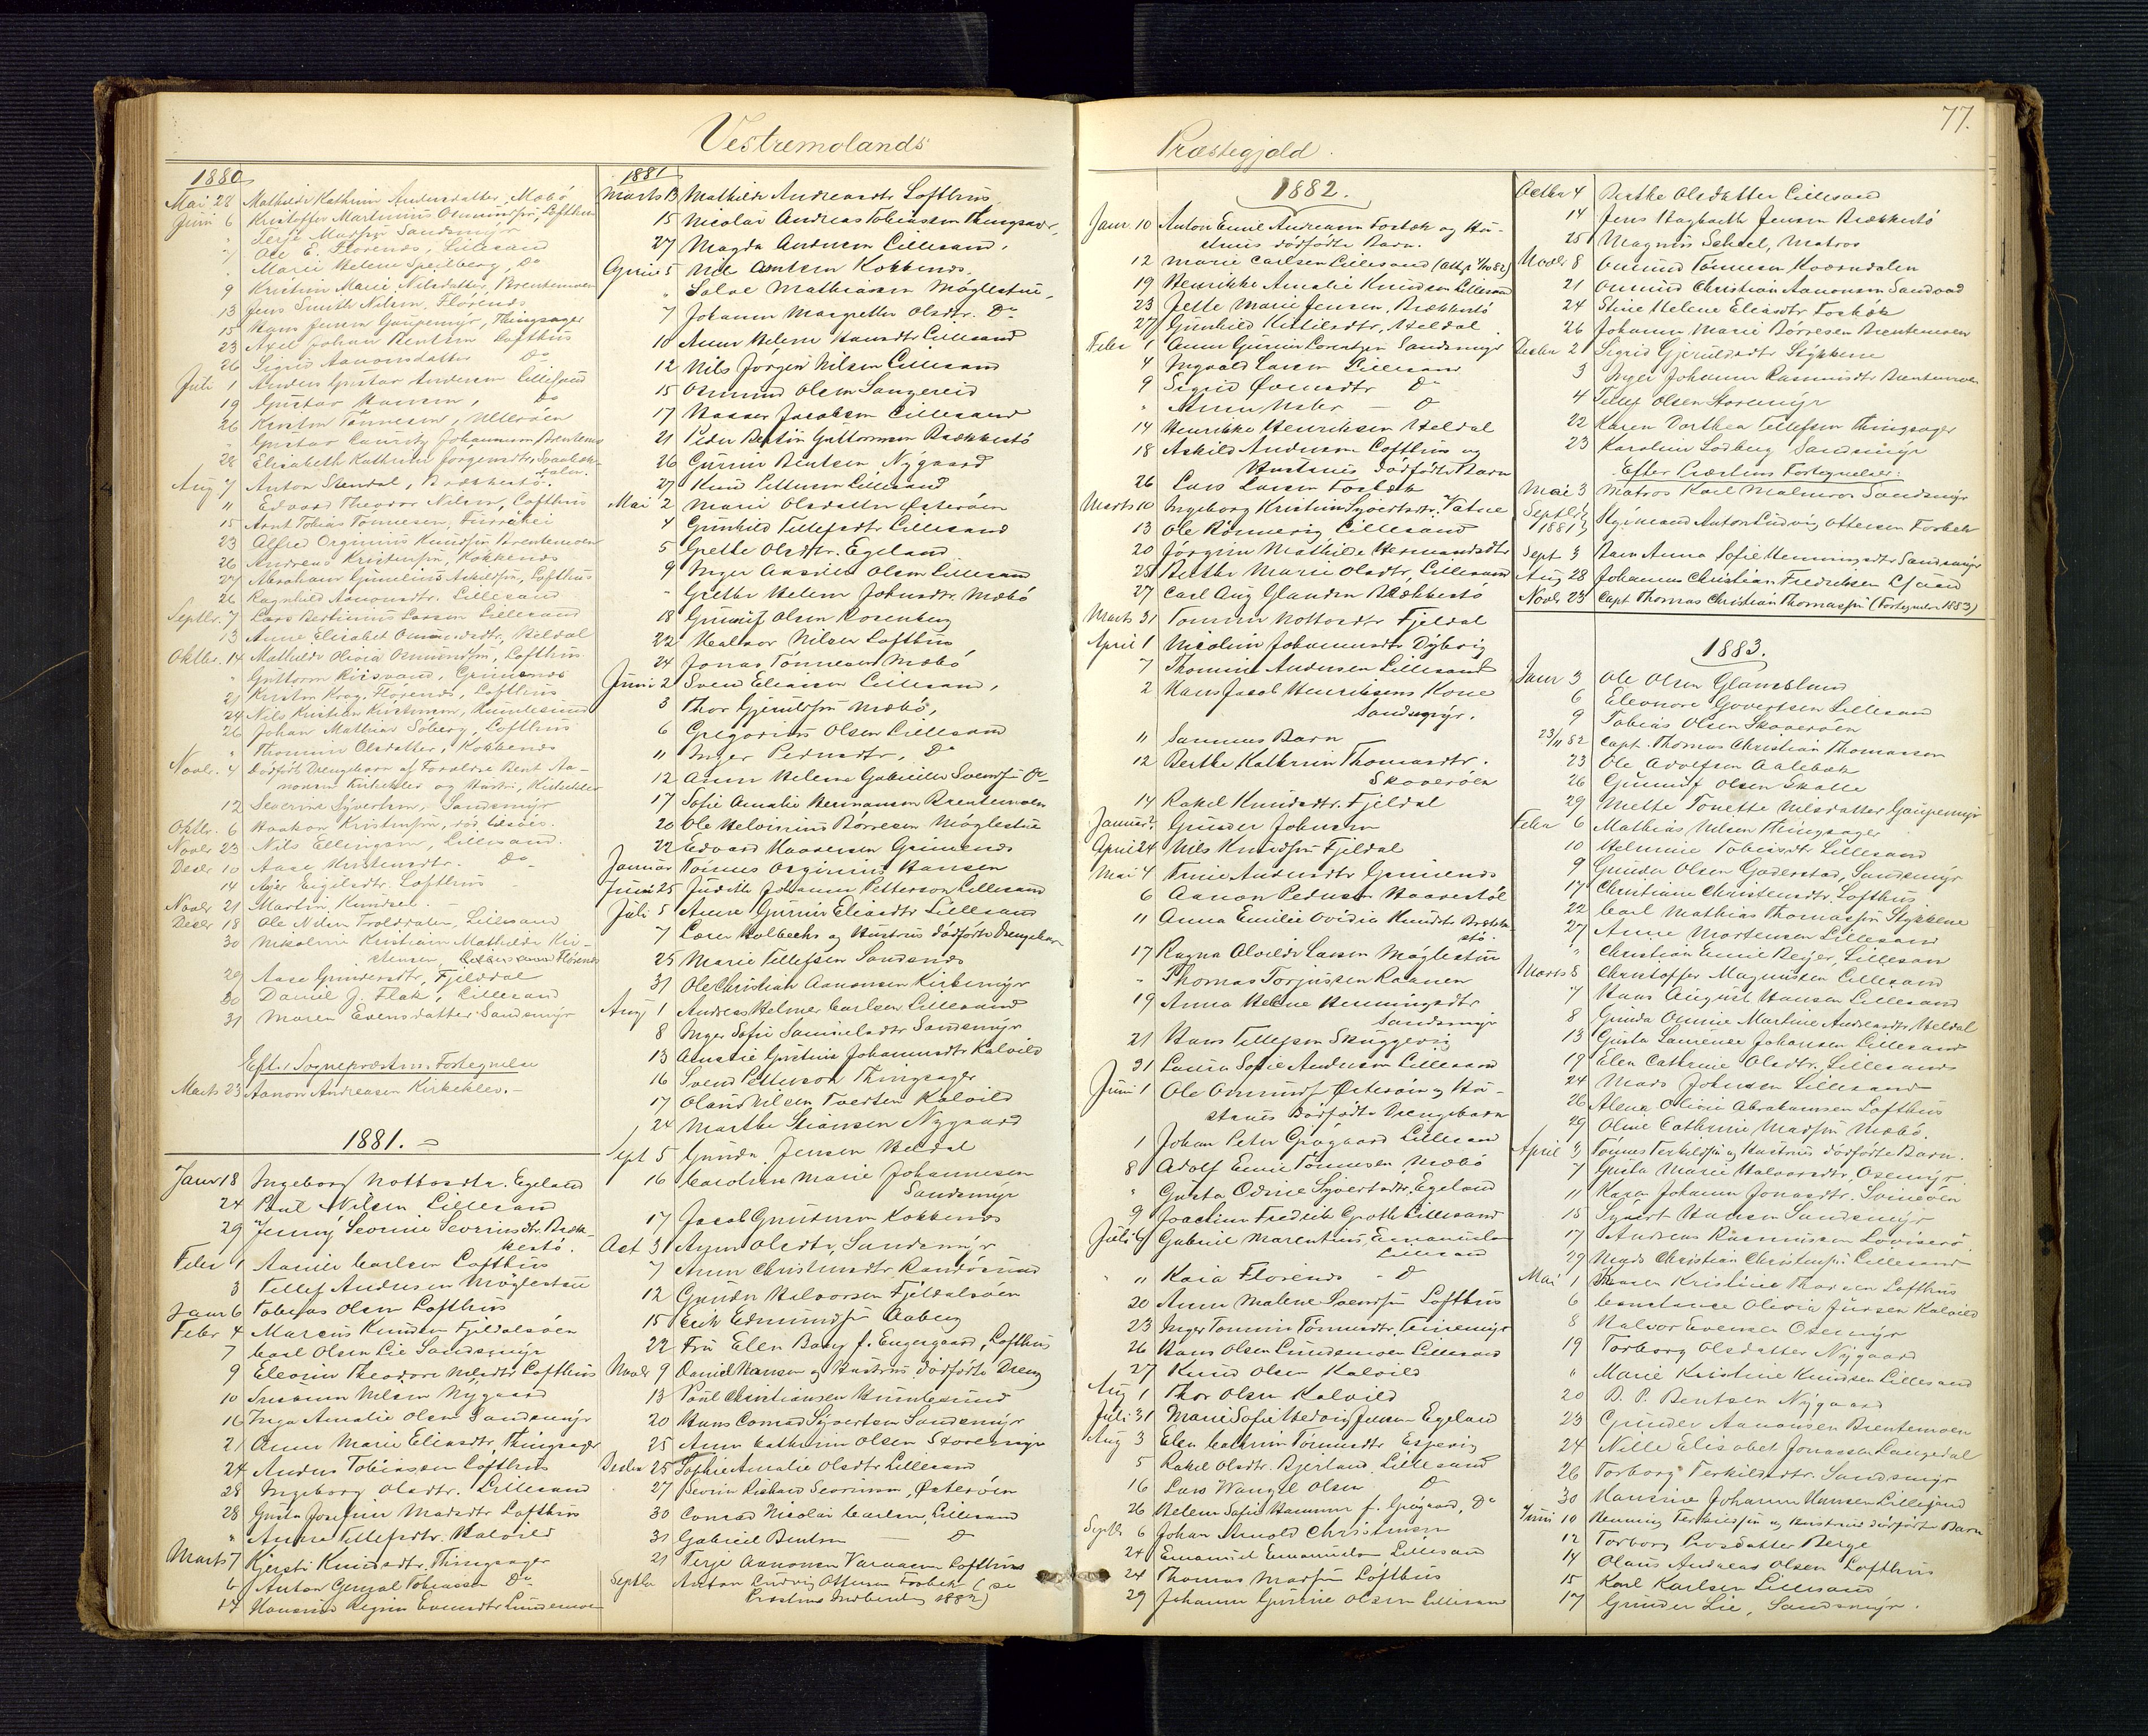 Vestremolands
1880
Mai 28 Mathilde Kathrine Andersdatter, Mæbö
Juni 6 Kristoffer Martinius Osmundsen, Lofthus
" Terje Madssen Sandsmyr
7 Ole E. Florenæs, Lillesand
" Marie Helene Speilberg, Do
9 Kristine Marie Nilsdatter, Brentemoen
13 Jens Smith Nilsen, Florenæs
15 Hans Jensen Gaupemyr, Thingsager
23 Axel Johan Bentsen Lofthus
26 Sigrid Aanonsdatter Do
Juli 1 Anders Gustav Andersen Lillesand
19 Gustav Hansen, Do
26 Kristen Tönnesen, Ulleröen
" Gustav Lauritz Johannesen Brentemoen
28 Elisabeth Kathrine Jörgensdtr.
Aug 7 Anton Stendal, Brækkestö.
11 Edvard Theodor Nilsen, Lofthus
15 Arnt Tobias Tönnesen, Furuhei
23 Alfred Orginius Knudsen Brentemoen
26 Andreas Kristensen, Kokkenæs
27 Abraham Gumelius Askildsen, Lofthus
26 Ragnhild Aanonsdtr. Lillesand
Septbr. 7 Lars Bertinius Larsen Lillesand
13 Anne Elisabet Osmundsdtr, Heldal
Oktbr. 14 Mathilde Olivia Osmundsen, Lofthus
" Guttorm Riisvand, Grimenæs
21 Kristen Krog, Florenæs, Lofthus
24 Nils Kristian Kristensen, Humlesund
26 Johan Mathias Söberg, Lofthus
" Thomine Olsdatter, Kokkenæs
Novbr. 4 Dödfödt Drengebarn af Forældre Bent Aa-
nonsen Kirkeklev og Hustru, Kirkeklev
12 Severine Syvertsen, Sandsmyr
Oktbr. 6 Haakon Kristensen, död tilsöes.
Novbr 23 Nils Ellingsen, Lillesand.
Decbr 10 Aase Kristensdtr. Do
14 Asjer Eigilsdtr. Lofthus
Novbr 21 Martin Knudsen. -
Decbr 18 Ole Nilsen Trolddalen, Lillesand
30 Nikoline Kristiane Mathilde Kri-
stensen, Florenæs
29 Aase Gundersdtr, Fjeldal
30 Daniel J. Flak, Lillesand
31 Maren Evensdatter Sandsmyr
Eft. Sognepræstens Fortegnelse
Marts 23 Aanon Andreasen Kirkeklev. -
1881. -
Janr 18 Ingeborg Nottosdtr. Egeland
24 Paul Nilsen Lillesand
29 Jenny Severine Severinsdtr. Bræk-
kestö.
Febr 1 Aanile Carlsen Lofthus
3 Tellef Andersen Möglestue
Janr 6 Tobias Olsen Lofthus
Febr 4 Marcus Knudsen Fjeldalsöen
7 Carl Olsen Lie Sandsmyr
9 Eleonie Theodore Nilsdtr Lofthus
10 Susanne Nilsen Nygaard
16 Inga Amalie Olsen Sandsmyr
21 Anne Marie Eliasdtr, Thingsager
24 Anders Tobiassen Lofthus
28 Ingeborg Olsdtr. Lillesand
28 Gusta Josefine Madsdtr Lofthus
" Anne Tellefsdtr. Kalvild
Marts 7 Kjersti Knudsdtr, Thingsager
6 Anton Tobiassen Do
17 Hansine Regine Evensdtr Lundemoen
1881
Marts 13 Mathilde Andreasdtr Lofthus
15 Nicolai Andreas Tobiassen Thingsager,
27 Magda Andersen Lillesand,
Aprile 5 Nils Arntsen Kokkenæs.
" Salve Mathiasen Möglestue,
7 Johanne Margrethe Olsdtr. Do
10 Anne Helene Hansdtr Lillesand
12 Nils Jörgen Nilsen Lillesand
15 Osmund Olsen Sangereid
17 Hasser Jacobsen Lillesand
21 Peder Bertin Guttormsen Brækkestö
26 Gurine Bentsen Nygaard
27 Knud Pettersen Lillesand
Mai 2 Marie Olsdatter Østeröen
4 Gunhild Tellefsdtr Lillesand
5 Grethe Olsdtr. Egeland
9 Inger Olsen Lillesand
" Grethe Helene Johnsdtr, Mæbö
18 Gunuf Olsen Rosenberg
22 Healvor Nilsen Lofthus
24 Jonas Tönnesen Mæbö
Juni 2 Svend Eliassen Lillesand,
3 Thor Gjeruldsen Mæbö,
6 Gregorius Olsen Lillesand
11 Inger Pedersdtr, Do
12 Anne Helene Gabrielle Svendsen Do
17 Sofie Amalie Hermansen Brentemoen
20 Ole Helvinius Börresen Möglestue
22 Edvard Haavorsen Grimenæs
Januar Tönnes Orginius Hansen
Juni 25 Judith Johanne Petterson Lillesand
Juli 5 Anne Gurine Eliasdtr Lillesand
7 Lars Holbechs og Hustrus dödfödte Drengebarn
25 Marie Tellefsen Sandsnæs
31 Ole Christian Aanonsen Kirkemyr
Aug 1 Andreas Helmer Carlsen Lillesand
8 Inger Sofie Samuelsdtr Sandsmyr
13 Amalie Gustine Johannesdtr Kalvild
16 Svend Petterson Thingsager
17 Olaus Nilsen Tvedten Kalvild
24 Marthe Stiansen Nygaard
Sept 5 Gunda Jensen Heldal
16 Caroline Marie Johannesen
Sandsmyr
17 Jacob Gundersen Kokkenæs
Oct 3 Anne Olsdtr, Sandsmyr
7 Anne Christensdtr Randösund
12 Gunder Halvorsen Fjeldalsöen
15 Erik Edmundsen Aaberg
22 Fru Elen Bang f. Engegaard, Lofthus
Novbr 9 Daniel Hansen og Hustrus dödfödte Dreng
13 Paul Christiansen Humlesund
20 Hans Conrad Syvertsen Sandsmyr
25 Anne Cathrine Olsen Storemyr
Decbr 25 Sophie Amalie Olsdtr Lillesand
27 Severin Rickard Severinsen, Østeröen
30 Conrad Nicolai Carlsen, Lillesand
31 Gabriel Bentsen Do
21 Terje Aanonsen Vaaagen Lofthus
Septbr Anton Ludvig Ottersen Fosbæk (se
Præstens Indberetn. 1882)
Præstegjeld.
77.
1882.
Janr 10 Anton Emil Andreasen Fosbæk og Hu-
strus dödfödte Barn.
12 Marie Carlsen Lillesand
19 Henrikke Amalie Knudsen Lillesand
23 Jette Marie Jensen, Brækkestö
27 Gunhild Kittilsdtr, Heldal
Febr 1 Anne Gurine Lorentzen Sandsmyr
4 Ingvald Larsen Lillesand
9 Sigrid Do
14 Henrikke Henriksen Heldal
18 Askild Andersen Lofthus og
Hustrues dödfödte Barn
26 Lars Larsen Fosbæk
Marts 10 Ingeborg Kristine Syvertsdtr. Vatne
13 Ole Rönnevig, Lillesand
20 Jörgine Mathilde Hermansdtr
25 Berthe Marie Olsdtr, Lillesand
27 Carl Aug Glauden Brækkestö
Marts 31 Tomine Nottosdtr Fjeldal
April 1 Nicoline Johannesdtr Dybvig
7 Thomine Andersen Lillesand
2 Hans Jacob Henriksens Kone
Sandsmyr.
11 Sammes Barn
12 Berthe Kathrine Thomasdtr.
Skoveröen
14 Rakel Knudsdtr. Fjeldal
Januar? Gunder Johnsen
April 24 Nils Knudsen Fjeldal
Mai 4 Trine Andersdtr Grimenæs
6 Aanon Pedersen Haavestöl
11 Anna Emilie Ovidia Knudsdtr Brække-
stö.
17 Ragna Alvilde Larsen Möglestue
" Thomas Torjussen Kaanen
19 Anna Helene Henningsdtr
Sandsmyr
21 Hans Tellefsen Skuggevig
31 Laura Sofie Andersen Lillesand
Juni 1 Ole Osmundsen Österöen og Hu-
strues Dödfödte Drengebarn
1 Johan Peter Grögaard Lillesand
8 Adolf Emil Tönnesen Mæbö
" Gusta Odine Syvertsdtr. Egeland
9 Joachim Fredrik Groth Lillesand
Juli 6 Gabriel Marentius Emanuelsen
Lillesand
" 11 Kaia Florenæs - Do
20 Anne Malene Svendsen Lofthus
23 Inger Tomine Tönnesdtr, Teinemyr
26 Hans Olsen Lundemoen Lillesand
27 Knud Olsen Kalvild
Aug 1 Thor Olsen Kalvild
Juli 31 Marie Sofie Hedvig Jensen Egeland
Aug 3 Elen Cathrine Tönnesdtr Espevig
5 Rakel Olsdtr. Bjerland, Lillesand
16 Lars Wangel Olsen Do
26 Helene Sofie Hammer f. Grögaard, Do
Septbr 6 Johan Arnold Christensen
24 Emanuel Emanuelsen Lillesand
24 Thomas Madssen Lofthus
29 Johanne Gurine Olsen Lillesand
Octbr 4 Berthe Olsdatter Lillesand
14 Jens Hagbarth Jensen Brækkestö
25 Magnus Scheel, Matros
Novbr 8 Osmund Tönnesen Kværndalen
21 Osmund Christian Aanonsen Sandvad
24 Stine Helene Eliasdtr Fosbæk
26 Johanne Marie Börresen Brentemoen
Decbr 2 Sigrid Gjeruldsdtr Stykkene
3 Inger Johanne Rasmusdtr Brentemoen
4 Tellef Olsen Storemyr
22 Karen Dorthea Tellefsen Thingsager
23 Karoline Sodberg Sandsmyr
Efter Præstens Fortegnelse:
Mai 3 Matros Karl Malmros Sandsmyr
Septbr 1881 Styrmand Anton Ludvig Ottersen Fosbæk
Sept 3 Barn Anna Sofie Henningsdtr Sandsmyr
Aug 28 Johannes Christian Fredriksen
Novbr 23 Capt Thomas Christian Thomassen (Fortegnelse 1883)
1883.
Janr 3 Ole Olsen Glamsland
6 Eleonore Govertsen Lillesand
9 Tobias Olsen Skoveröen
23/11 82 Capt. Thomas Christian Thomassen
23 Ole Adolfsen Aalebæk
26 Gunnuf Olsen Skalle
29 Mette Tonette Nilsdatter Gaupemyr
Febr 6 Mathias Nilsen Thingsager
10 Helmine Tobiasdtr Lillesand
9 Gunder Olsen Gjaderstad, Sandsmyr
17 Christiane Christensdtr, Lofthus
22 Carl Mathias Thomassen Stykkene
27 Anne Mortensen Lillesand
" Christian Emil Beyer, Lillesand
Marts 8 Christoffer Magnussen Lillesand
7 Hans August Hansen Lillesand
8 Gunda Omine Martine Andreasdtr Heldal
13 Gusta Laurence Johansen Lillesand
19 Elen Cathrine Olsdtr. Lillesand
24 Mads Johnsen Lillesand
26 Alena Olivie Abrahamsen Lofthus
29 Oline Cathrine Madssen Mæbö.
April 3 Tönnes Terkildsen og Hustrues dödfödte Barn.
7 Gusta Marie Halvorsdtr, Osemyr.
11 Karen Johanne Jonasdtr. Svineöen
15 Syvert Hansen Sandsmyr
17 Andreas Rasmussen
29 Mads Christian Christensen Lillesand
Mai 1 Karen Kristine Thorsen Lofthus
6 Constance Olivia Jürsen Kalvild
8 Halvor Evensen Osemyr
19 Torborg Olsdatter Nygaard
" Marie Kristine Knudsen Lillesand
20 B. P. Bentsen Nygaard
23 Gunder Aanonsen Brentemoen
24 Nille Elisabet Jonassen Langedal
26 Torborg Terkildsdtr. Sandsmyr
30 Hansine Johanne Hansen Lillesand
Juni 10 Henning Terkildsen og Hustrues dödfödte Barn
12 Torborg Rosdatter Berge
14 Olaus Andreas Olsen Lofthus
15 Karl Karlsen Lillesand
17 Gunder Lie, Sandsmyr.